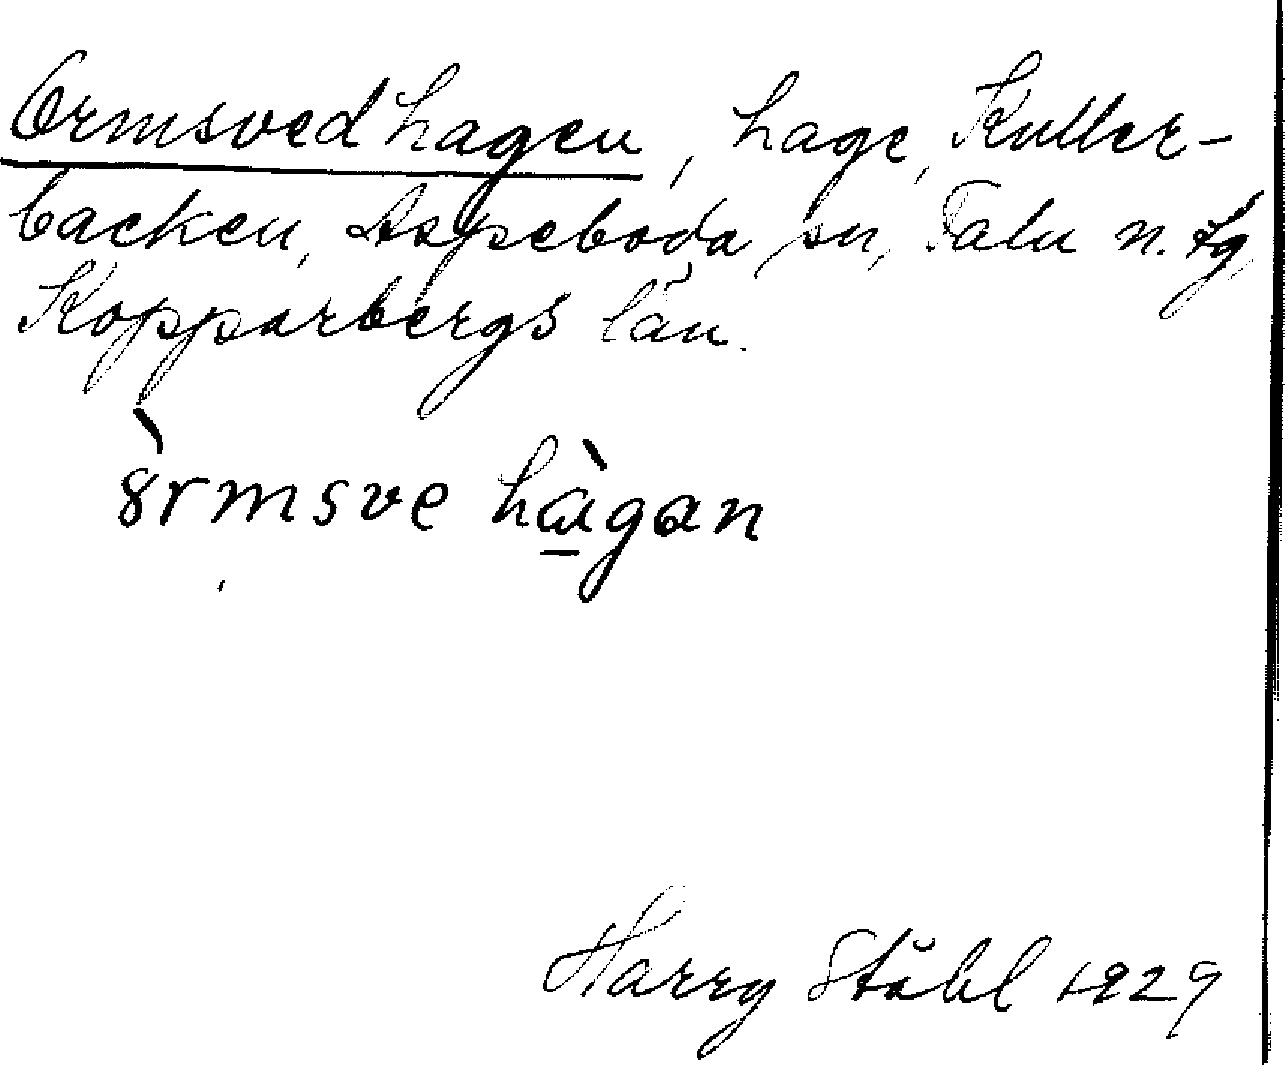 Ormsvedhagen, hage, Kuller-
backen, Aspeboda sn, Falu n. tg,
Kopparbergs län.
ȣ̀rmsve hàgan
Harry Ståhl 1929